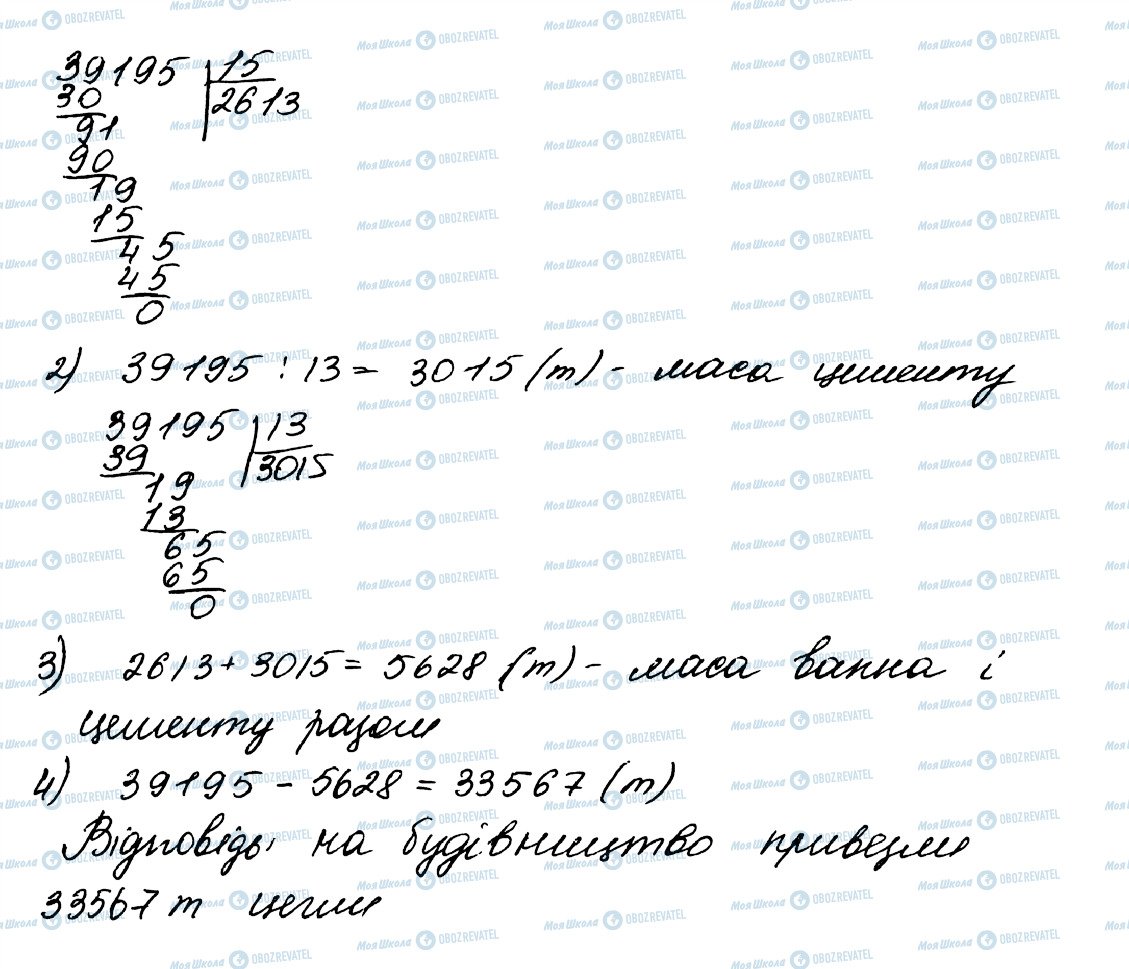 39195 | 15
30 2613
91
90
19
15
45
45
0
2) 39195 : 13 = 3015 (т) - маса цементу
39195 | 13
39 3015
19
13
65
65
0
3) 2613 + 3015 = 5628 (т) - маса вапна і
цементу разом
4) 39195 - 5628 = 33567 (т)
Відповідь: на будівництво привезли
33567 т цегли
Моя Школа OBOZREVATEL